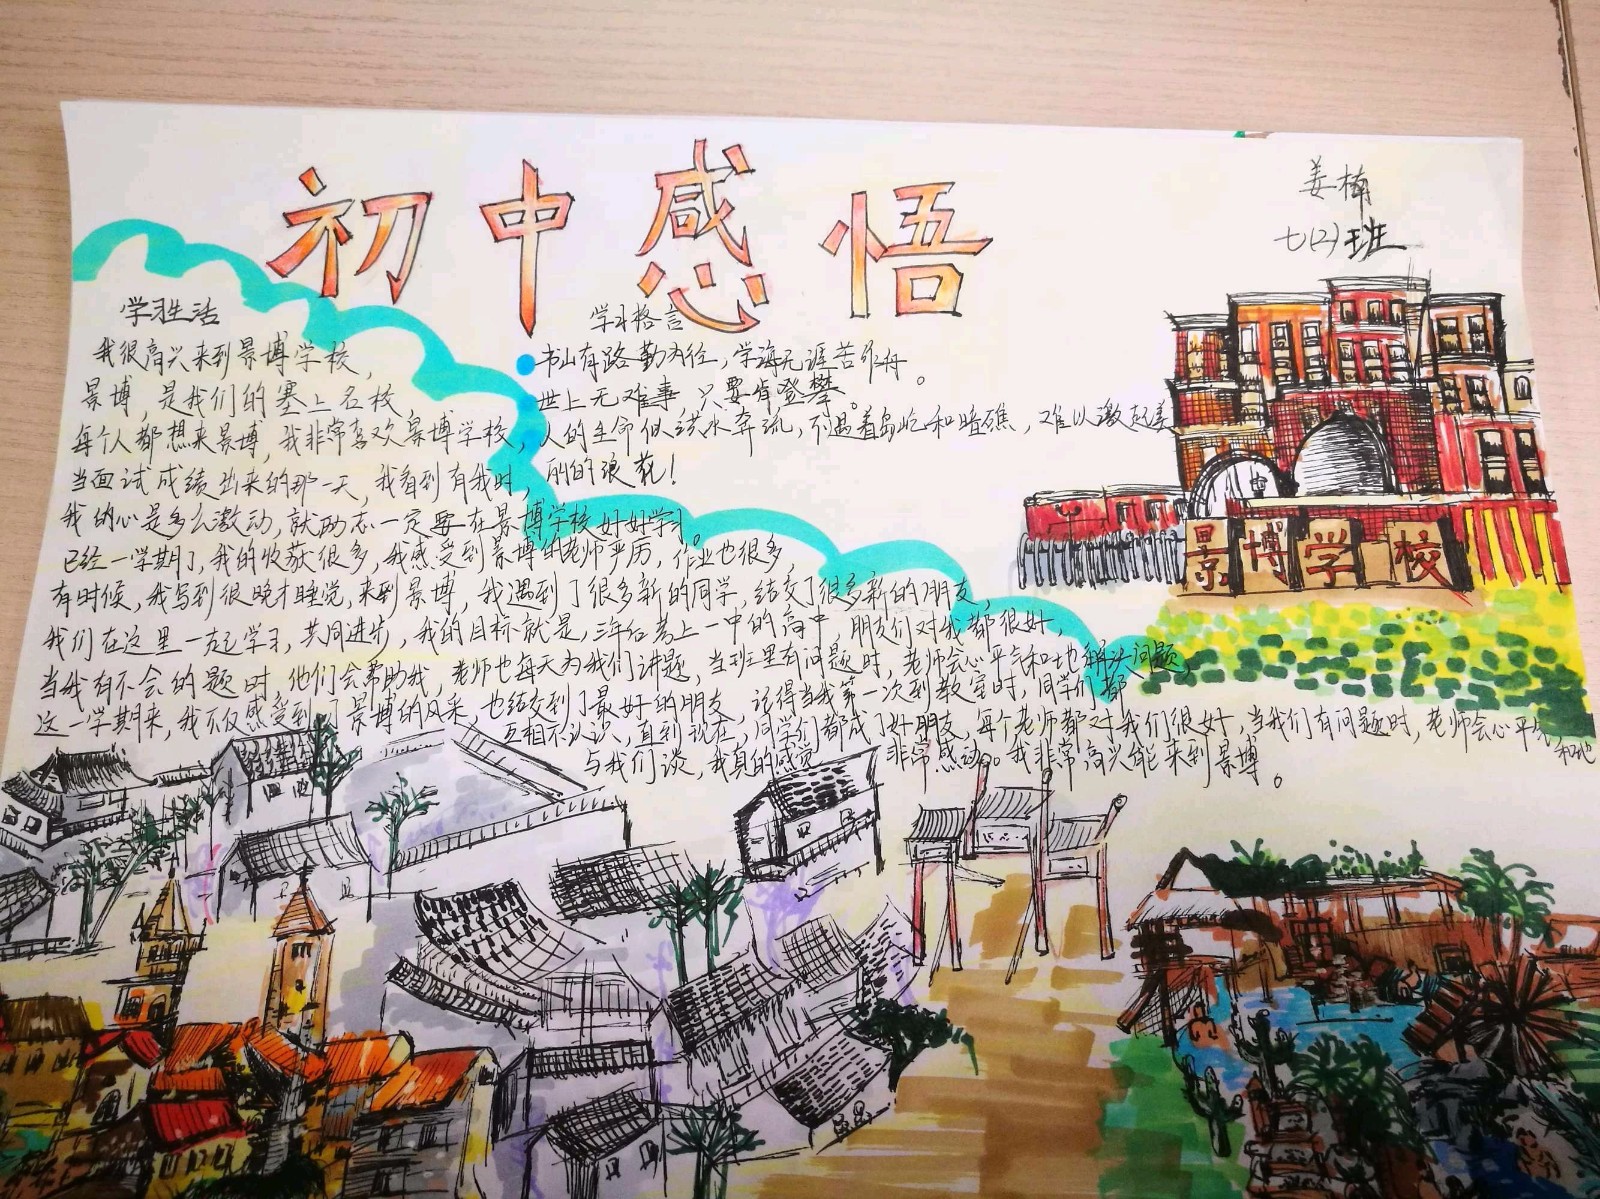 初中感悟
姜楠
七(2)班
学习生活
我很高兴来到景博学校，
景博，是我们的塞上名校
每个人都想来景博，我非常喜欢景博学校，
当面试成绩出来的那一天，我看到有我时，
我的心是多么激动，就励志一定要在景博学校好好学习。
已经一学期了，我的收获很多，我感受到景博的老师严厉，作业也很多，
有时候，我写到很晚才睡觉，来到景博，我遇到了很多新的同学，结交了很多新的朋友，
我们在这里一起学习，共同进步，我的目标就是，三年后考上一中的高中，朋友们对我都很好，
当我有不会的题时，他们会帮助我，老师也每天为我们讲题，当班里有问题时，老师会心平气和地解决问题，
这一学期来，我不仅感受到了景博的风采，也结交到了最好的朋友，记得当我第一次到教室时，同学们都
互相不认识，直到现在，同学们都成了好朋友，每个老师都对我们很好，当我们有问题时，老师会心平气和地
与我们谈，我真的感觉非常感动。我非常高兴能来到景博。
学习格言
书山有路勤为径，学海无涯苦作舟。
世上无难事，只要肯登攀。
人的生命似洪水奔流，不遇着岛屿和暗礁，难以激起美
丽的浪花！
景博学校